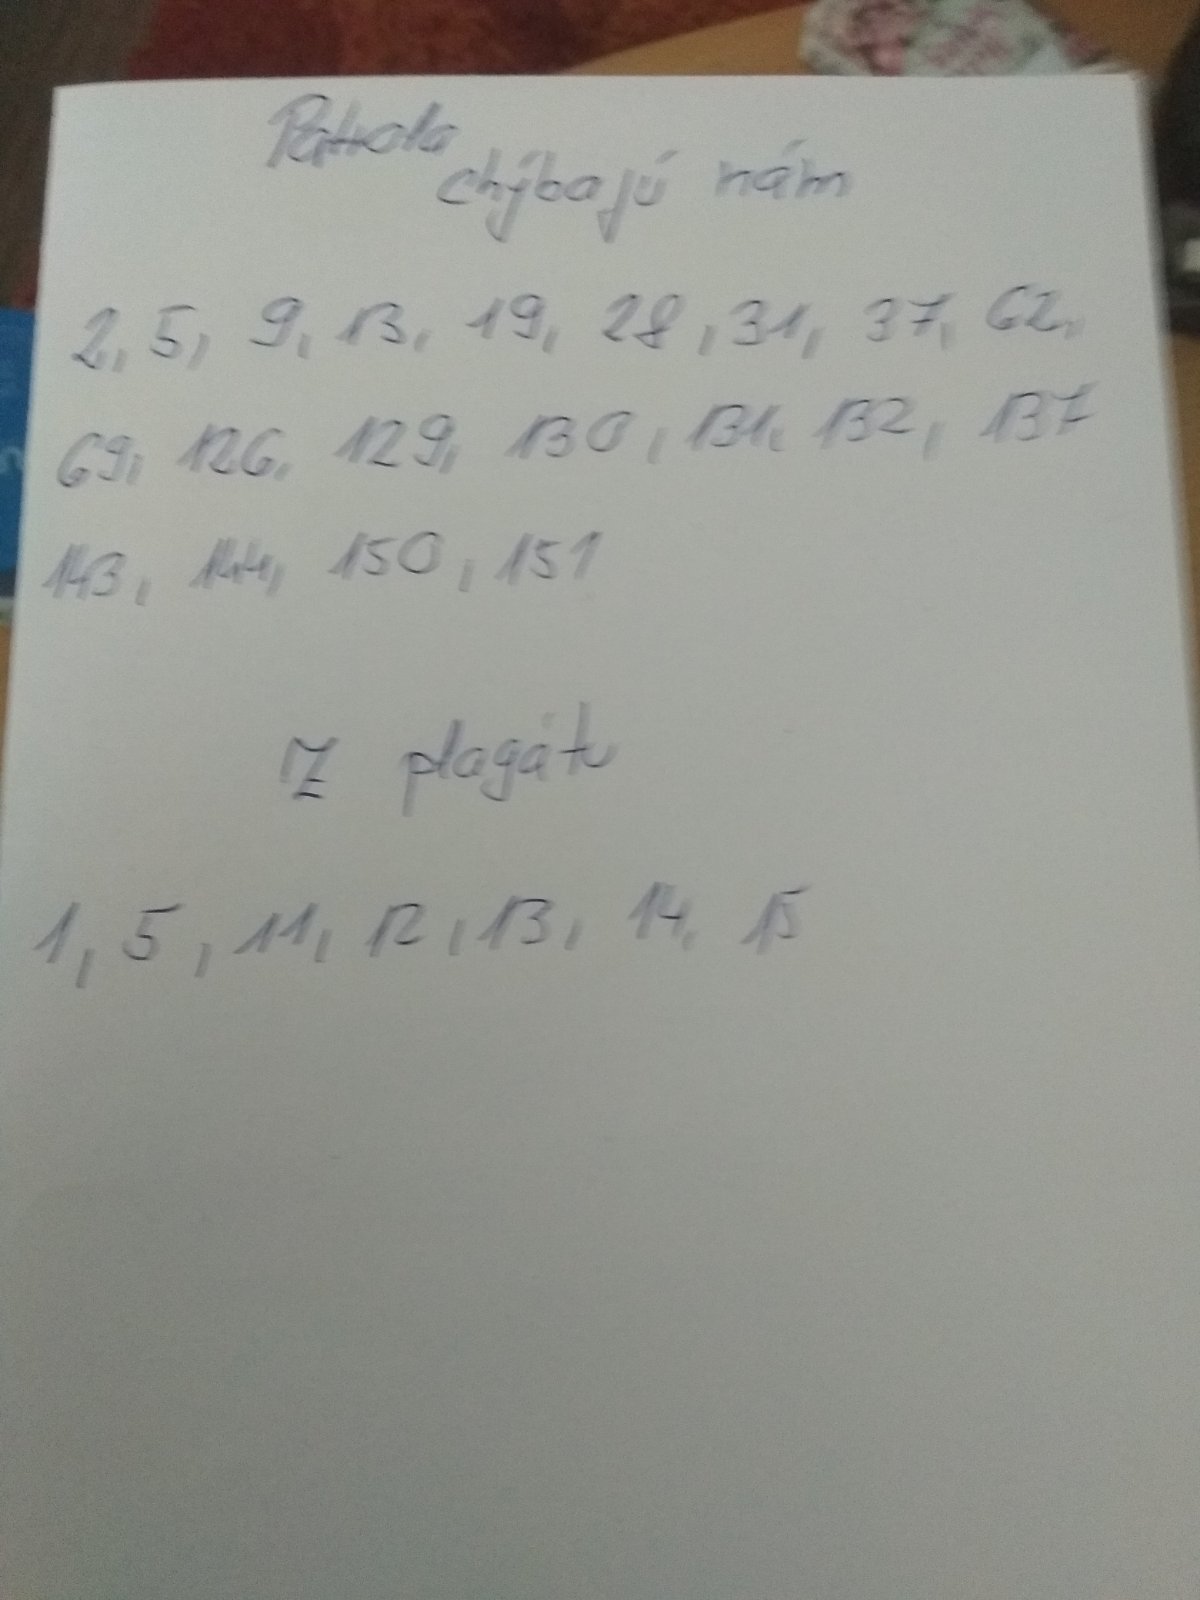 Patrola
chýbajú nám
2, 5, 9, 13, 19, 28, 31, 37, 62,
69, 126, 129, 130, 131, 132, 137
143, 144, 150, 151
Z plagátu
1, 5, 11, 12, 13, 14, 15